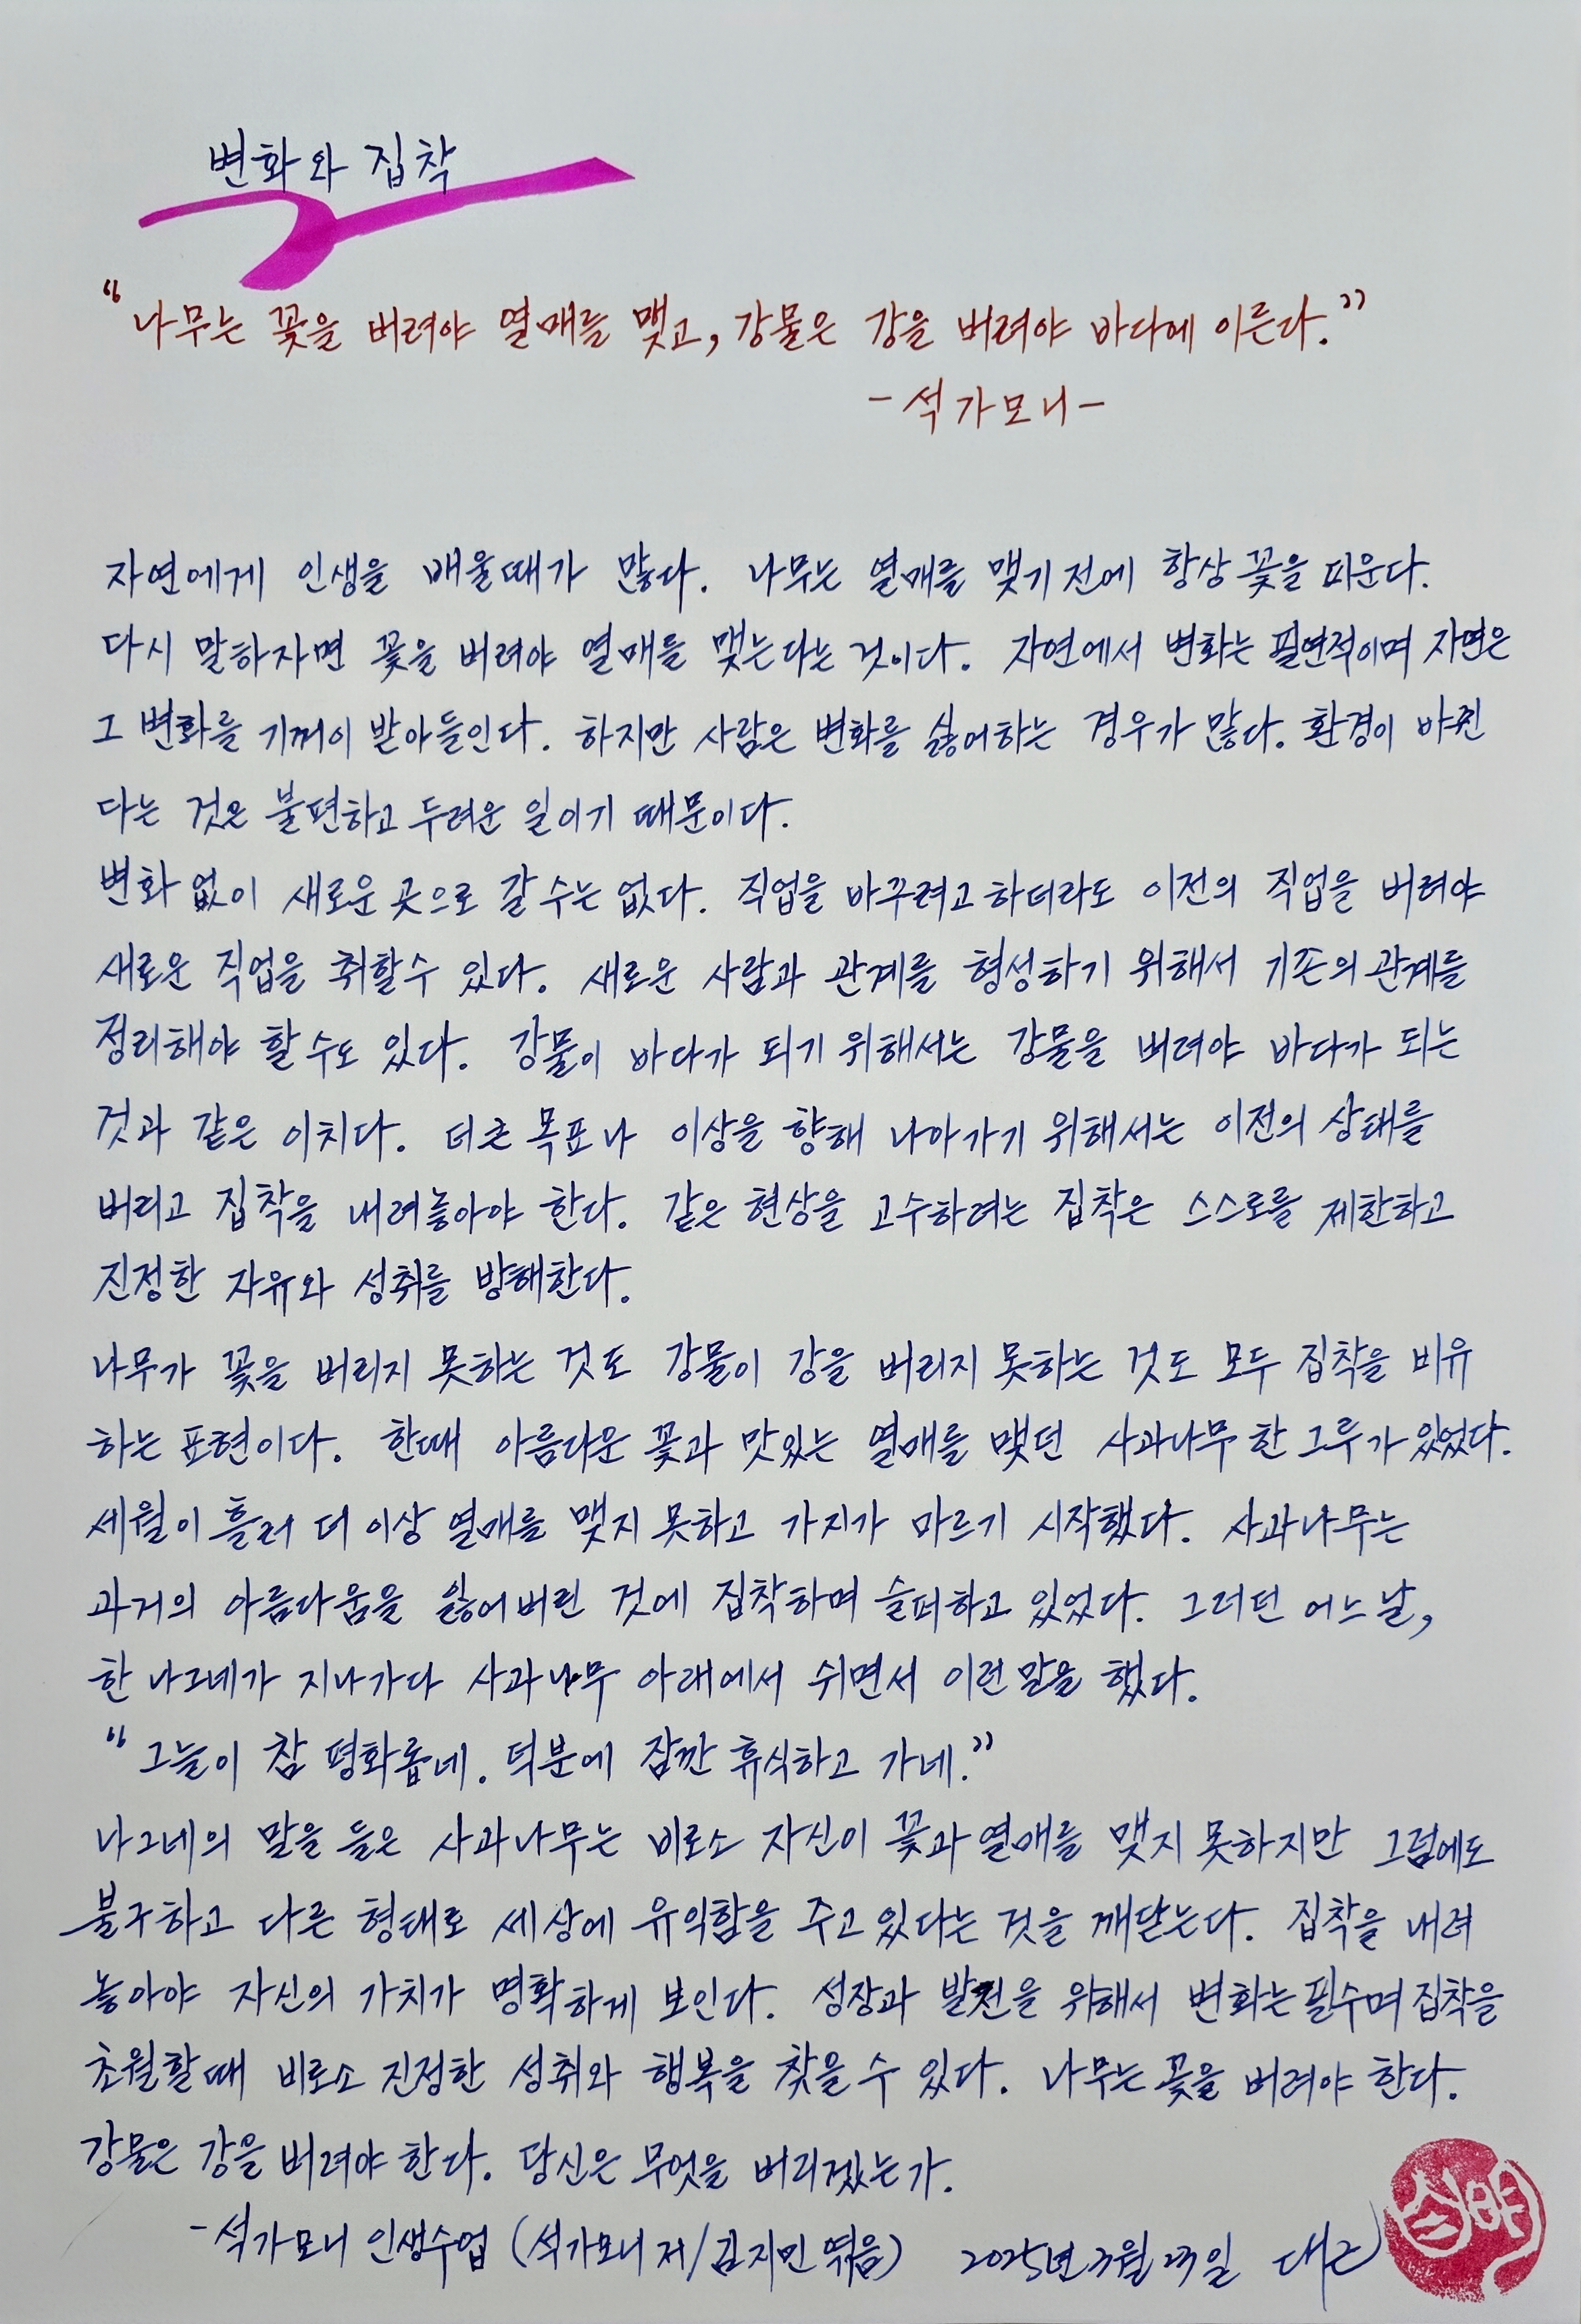 변화와 집착
“나무는 꽃을 버려야 열매를 맺고, 강물은 강을 버려야 바다에 이른다.”
- 석가모니 -
자연에게 인생을 배울때가 많다. 나무는 열매를 맺기 전에 항상 꽃을 피운다.
다시 말하자면 꽃을 버려야 열매를 맺는다는 것이다. 자연에서 변화는 필연적이며 자연은
그 변화를 기꺼이 받아들인다. 하지만 사람은 변화를 싫어하는 경우가 많다. 환경이 바뀐
다는 것은 불편하고 두려운 일이기 때문이다.
변화 없이 새로운 곳으로 갈 수는 없다. 직업을 바꾸려고 하더라도 이전의 직업을 버려야
새로운 직업을 취할 수 있다. 새로운 사람과 관계를 형성하기 위해서 기존의 관계를
정리해야 할 수도 있다. 강물이 바다가 되기 위해서는 강물을 버려야 바다가 되는
것과 같은 이치다. 더 큰 목표나 이상을 향해 나아가기 위해서는 이전의 상태를
버리고 집착을 내려놓아야 한다. 같은 현상을 고수하려는 집착은 스스로를 제한하고
진정한 자유와 성취를 방해한다.
나무가 꽃을 버리지 못하는 것도 강물이 강을 버리지 못하는 것도 모두 집착을 비유
하는 표현이다. 한때 아름다운 꽃과 맛있는 열매를 맺던 사과나무 한 그루가 있었다.
세월이 흘러 더 이상 열매를 맺지 못하고 가지가 마르기 시작했다. 사과나무는
과거의 아름다움을 잃어버린 것에 집착하며 슬퍼하고 있었다. 그러던 어느 날,
한 나그네가 지나가다 사과나무 아래에서 쉬면서 이런 말을 했다.
“그늘이 참 평화롭네. 덕분에 잠깐 휴식하고 가네.”
나그네의 말을 들은 사과나무는 비로소 자신이 꽃과 열매를 맺지 못하지만 그럼에도
불구하고 다른 형태로 세상에 유익함을 주고 있다는 것을 깨닫는다. 집착을 내려
놓아야 자신의 가치가 명확하게 보인다. 성장과 발전을 위해서 변화는 필수며 집착을
초월할 때 비로소 진정한 성취와 행복을 찾을 수 있다. 나무는 꽃을 버려야 한다.
강물은 강을 버려야 한다. 당신은 무엇을 버리겠는가.
- 석가모니 인생수업 (석가모니 저/김지민 엮음) 2025년 3월 23일